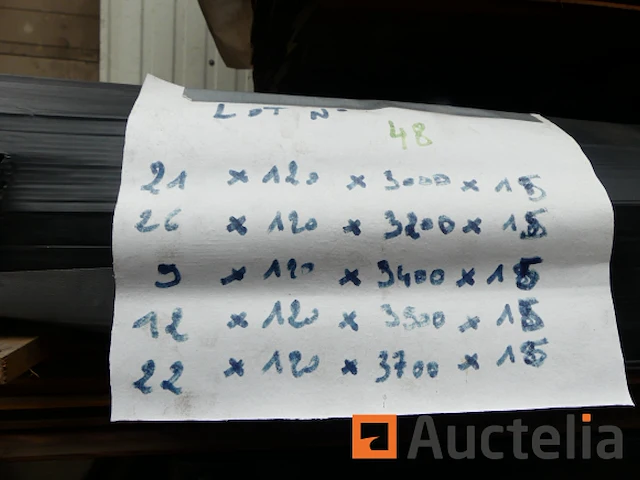 LOT N°
48
21 x 120 x 3000 x 15
26 x 120 x 3200 x 15
9 x 120 x 3400 x 15
12 x 120 x 3500 x 15
22 x 120 x 3700 x 15
Auctelia